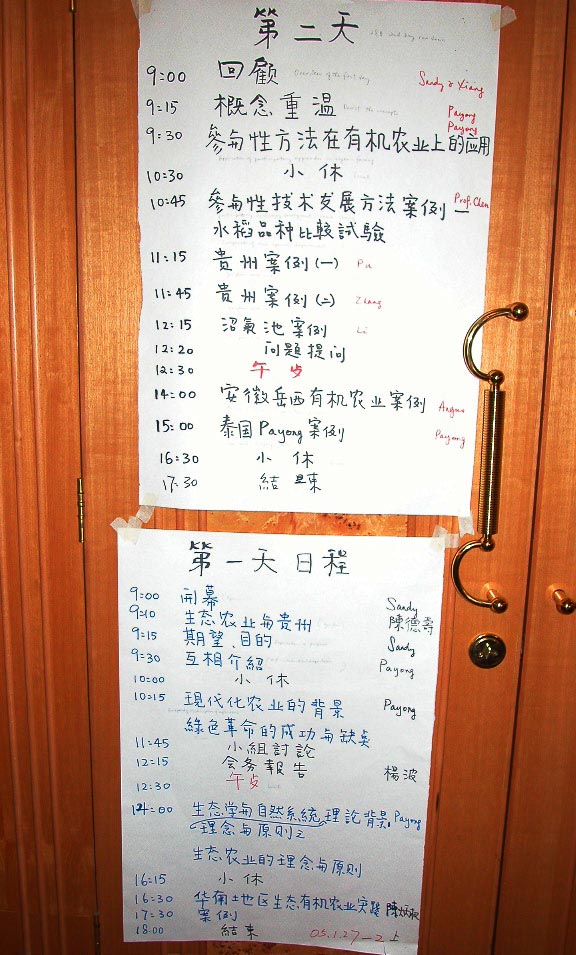 第二天
9:00 回顧 Overview of the first day Sandy & Xiang
9:15 概念重温 Payong
9:30 參與性方法在有机农业上的应用 Payong
10:30 小休
10:45 參与性技术发展方法案例一 Prof. Chen
水稻品种比較試驗
11:15 貴州案例(一) Pu
11:45 貴州案例(二) Zhang
12:15 沼氣池案例 Li
12:20 问题提问
12:30 午歩
14:00 安徽岳西有机农业案例 Angus
15:00 泰国Payong案例 Payong
16:30 小休
17:30 結束
第一天日程
9:00 開幕 Sandy
9:10 生态农业与贵州 陳德壽
9:15 期望、目的 Sandy
9:30 互相介紹 Payong
10:00 小休
10:15 現代化农业的背景 Payong
綠色革命的成功与缺失
11:45 小組討論
12:15 会务報告 楊波
12:30 午歩
14:00 生态学与自然系統理論背景 Payong
理念与原则之
生态农业的理念与原则
16:15 小休
16:30 华南土地区生态有机农业实踐
17:30 案例
18:00 結束 05.1.27-2上